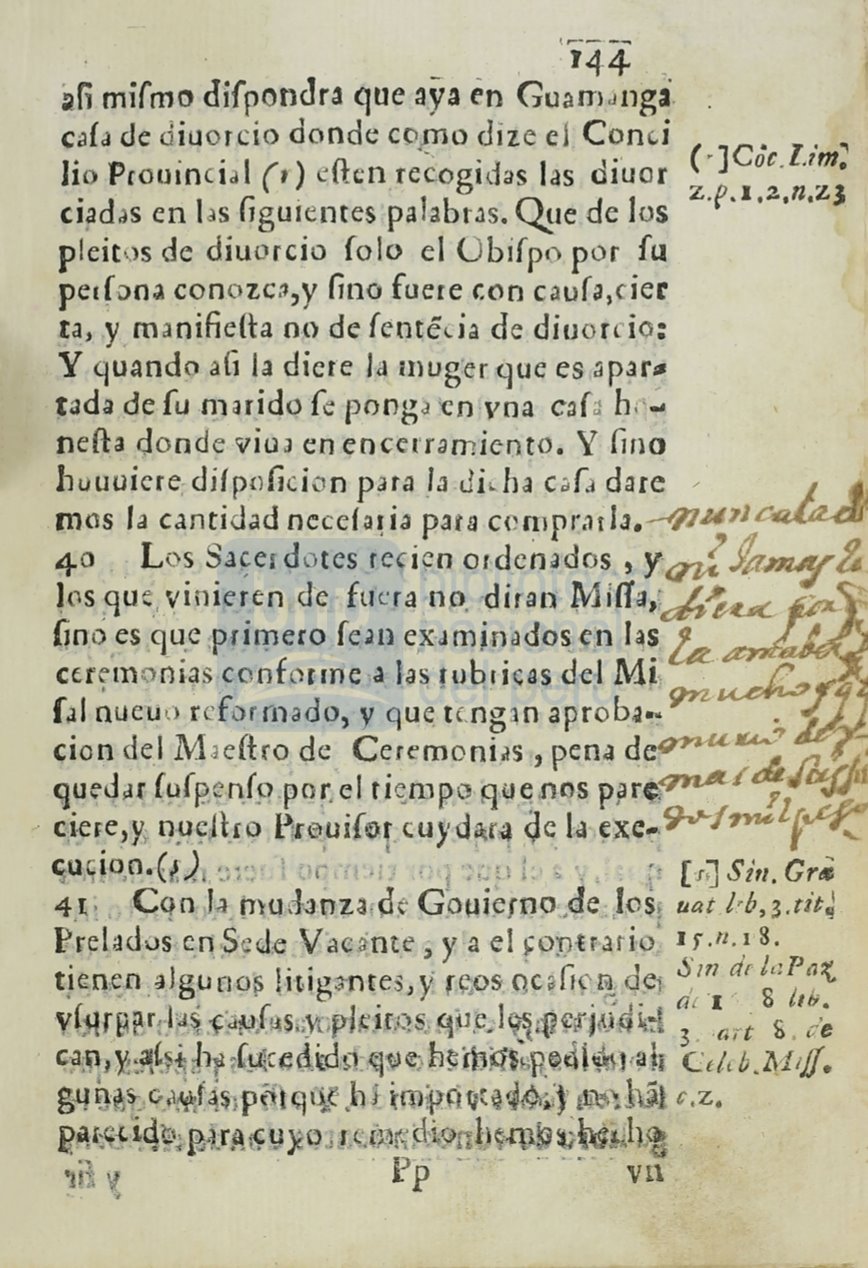 144
asi miſmo diſpondra que aya en Guamanga
caſa de diuorcio donde como dize el Conci
lio Prouincial (r) eſten recogidas las diuor
ciadas en las ſiguientes palabras. Que de los
pleitos de diuorcio ſolo el Obiſpo por ſu
perſona conozca,y ſino fuere con cauſa,cier
ta, y manifieſta no de ſentẽcia de diuorcio:
Y quando aſi la diere la muger que es apar-
tada de ſu marido ſe ponga en vna caſa ho-
neſta donde viua en encerramiento. Y ſino
huuuiere diſpoſicion para la dicha caſa dare
mos la cantidad neceſaria para comprarla.
40 Los Sacerdotes recien ordenados , y
los que vinieren de fuera no diran Miſſa,
ſino es que primero ſean examinados en las
ceremonias conforme a las rubricas del Mi
ſal nueuo reformado, y que tengan aproba-
cion del Maeſtro de Ceremonias , pena de
quedar ſuſpenſo por el tiempo que nos pare
ciere,y nueſtro Prouiſor cuydara de la exe-
cucion.(s)
41 Con la mudanza de Gouierno de los
Prelados en Sede Vacante , y a el contrario
tienen algunos litigantes,y reos ocaſion de
vſurpar las cauſas,y pleitos que les perjudi-
can,y aſsi ha ſucedido que hemos pedido al
gunas cauſas porque ha importado,y no hã
parecido para cuyo remedio hemos hecho
Pp vn
Cõc. Lim.
2.p.1.2.n.23
nunca
jamas
la
mucho
mas de
mil
[s] Sin. Gra
uat lib,3.tit.
15.n.18.
Sin de la Paz
de 1 8 lib.
3 art 8. de
Celeb.Miſſ.
c.2.